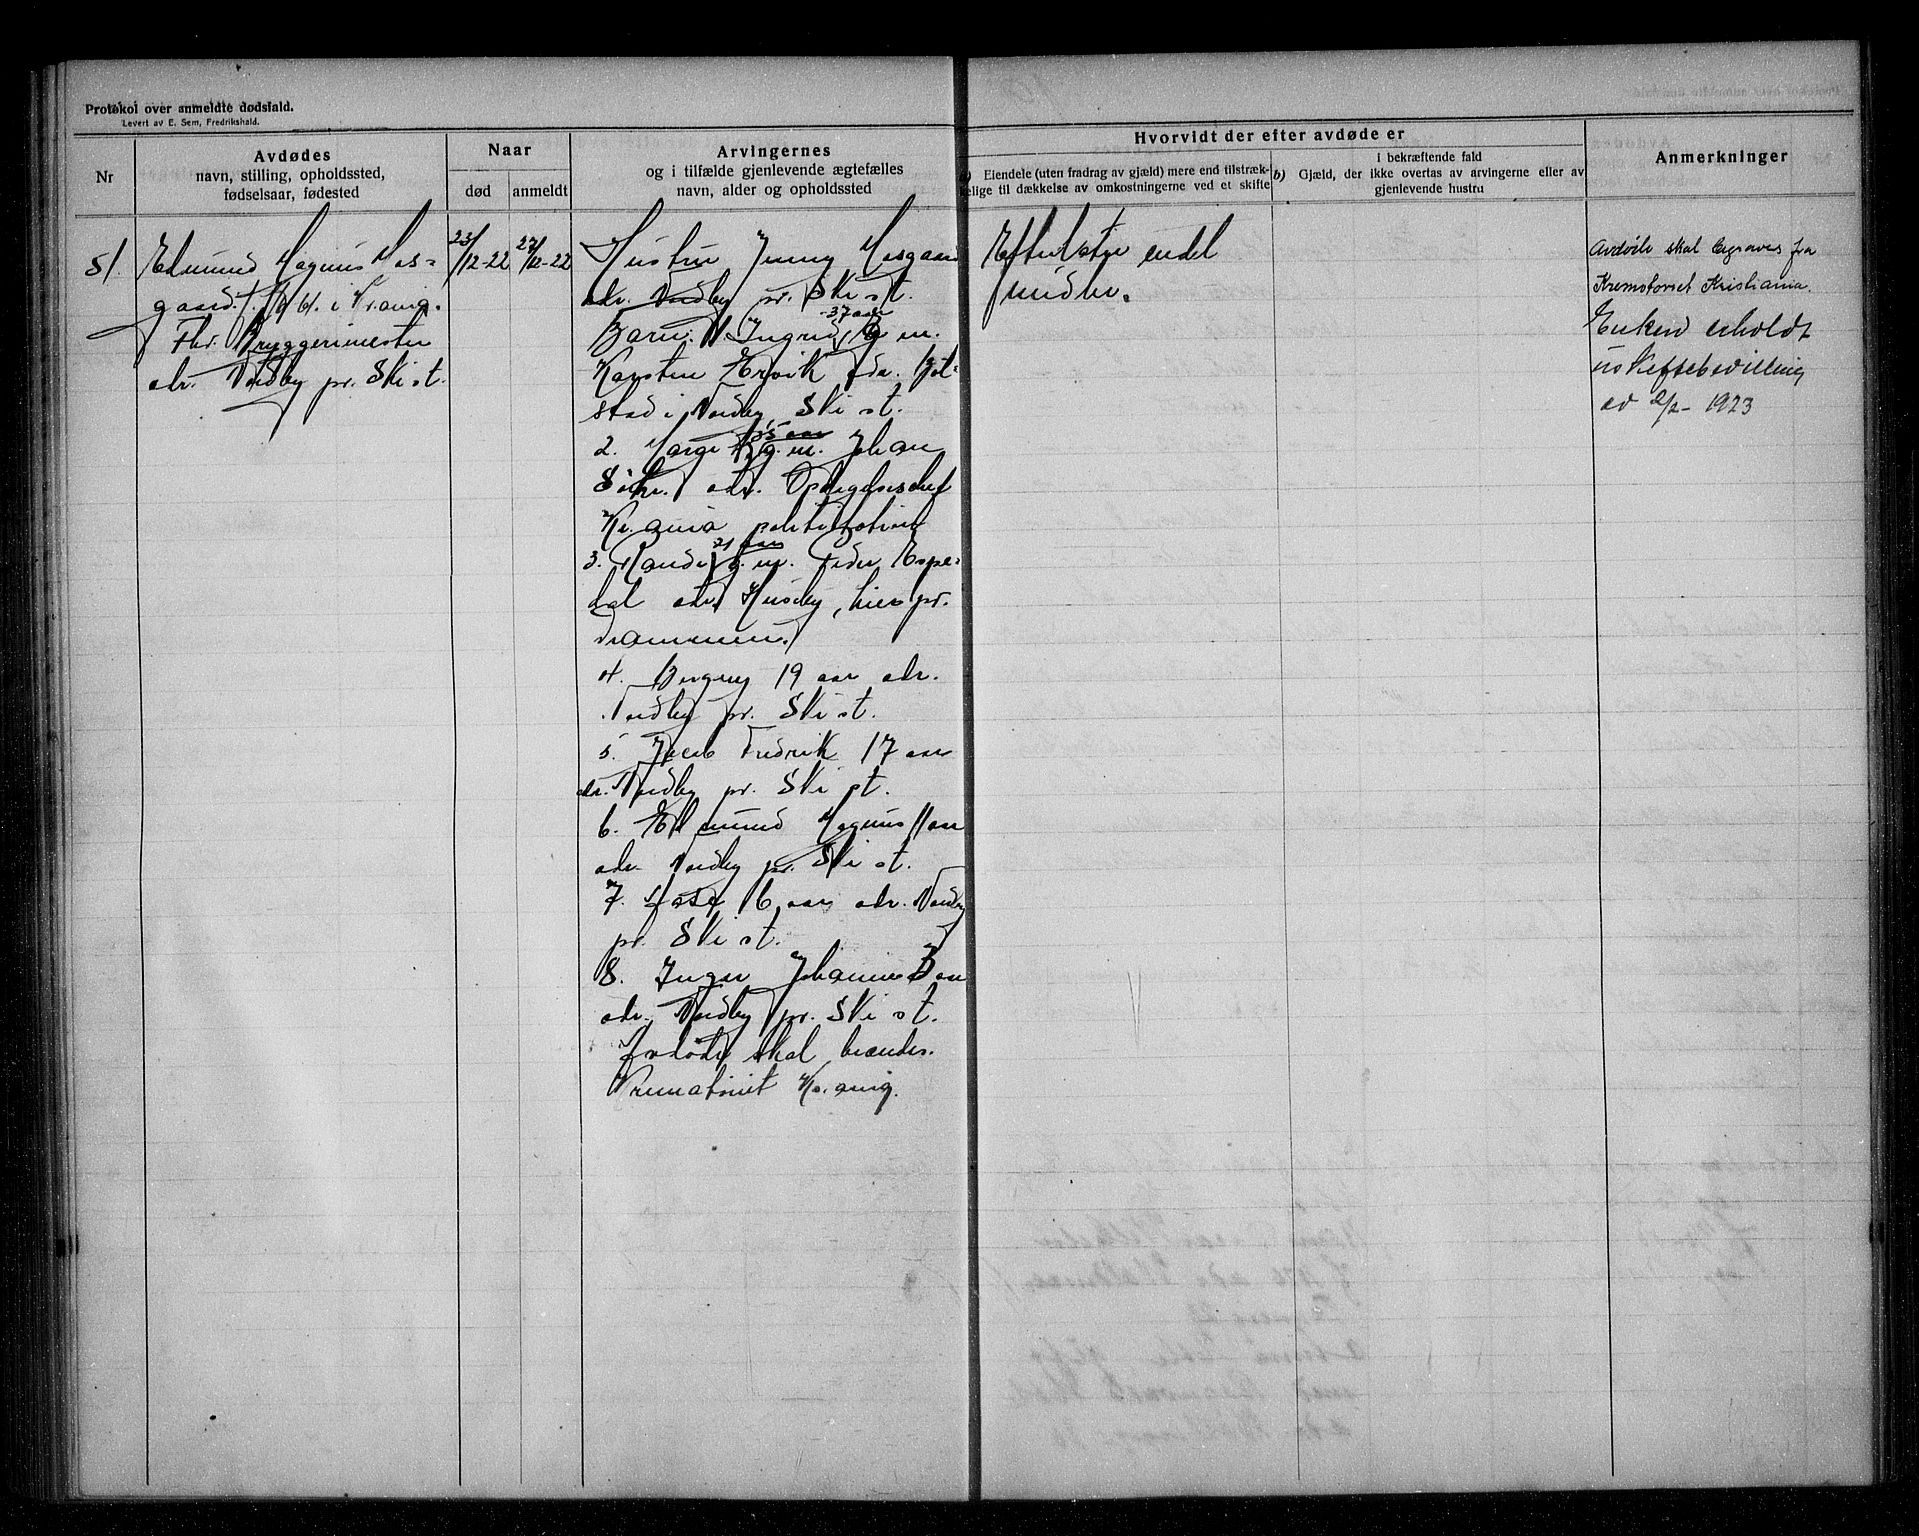 Protokol over anmeldte dødsfald.
Levert av E. Sem, Fredrikshald.
Nr
Avdødes
navn, stilling, opholdssted,
fødselsaar, fødested
Naar
død
anmeldt
Arvingernes
og i tilfælde gjenlevende ægtefælles
navn, alder og opholdssted
Hvorvidt der efter avdøde er
Eiendele (uten fradrag av gjæld) mere end tilstræk-
kelige til dækkelse av omkostningerne ved et skifte
I bekræftende fald
b) Gjæld, der ikke overtas av arvingerne eller av
gjenlevende hustru
Anmerkninger
51.
Edmund Magnus Mos-
gaard f. i Kr.ania.
Fhv. Bryggerimester
adr. Nordby pr. Ski st.
23/12-22
27/12-22
Hustru Jenny Mosgaard
adr. Nordby pr. Ski st.
37 aar
Barn: 1 Ingrid g. m.
Karsten adr. Bøl-
stad i Nordby Ski st.
35 aar
2. g. m. Johan
adr. Opdagelseschef
Kr.ania politistation
21 aar
3. Randi g. m. Peder Espe-
dal adr. Huseby, Lier pr.
Drammen.
4. Bergny 19 aar adr.
Nordby pr. Ski st.
5. Jacob Fredrik 17 aar
adr. Nordby pr. Ski st.
6. Edmund Magnus 11 aar
adr. Nordby pr. Ski st.
7. 6 aar adr. Nordby
pr. Ski st.
8. Inger Johanne 3 aar
adr. Nordby pr. Ski st.
Avdøde skal brændes.
Krematoriet Kr.ania.
Efterlatte endel
midler.
Avdøde skal begraves fra
Krematoriet Kristiania.
Enken erholdt
uskiftebevilling
av 2/2-1923